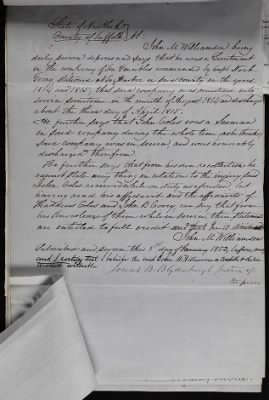 State of New York
County of Suffolk ss.
John M. Williamson being
duly sworn deposes and says that he was a Lieutenant
in the company of Sea Fencibles commanded by Capt
Terry stationed at Sag Harbor in said county in the years
1814 and 1815, that said company was mustered into
service sometime in the month of August 1814 and discharged
about the third day of April 1815.
He further says that John Coles was a Seaman
in said company during the whole time
said company was in service and was honorably
discharged therefrom
He further says that from his own recollection he
cannot state any thing in relation to the injury said
John Coles received while on duty as aforesaid, but
having read the affidavit and the affidavit of
Coles and John B. can say that from
his knowledge of them while in service, their statements
are entitled to full credit
John M. Williamson
Subscribed and sworn this 8th day of January 1852, before me
and I certify that the said John M Williamson is
witness
Blydenburgh Justice of
the peace